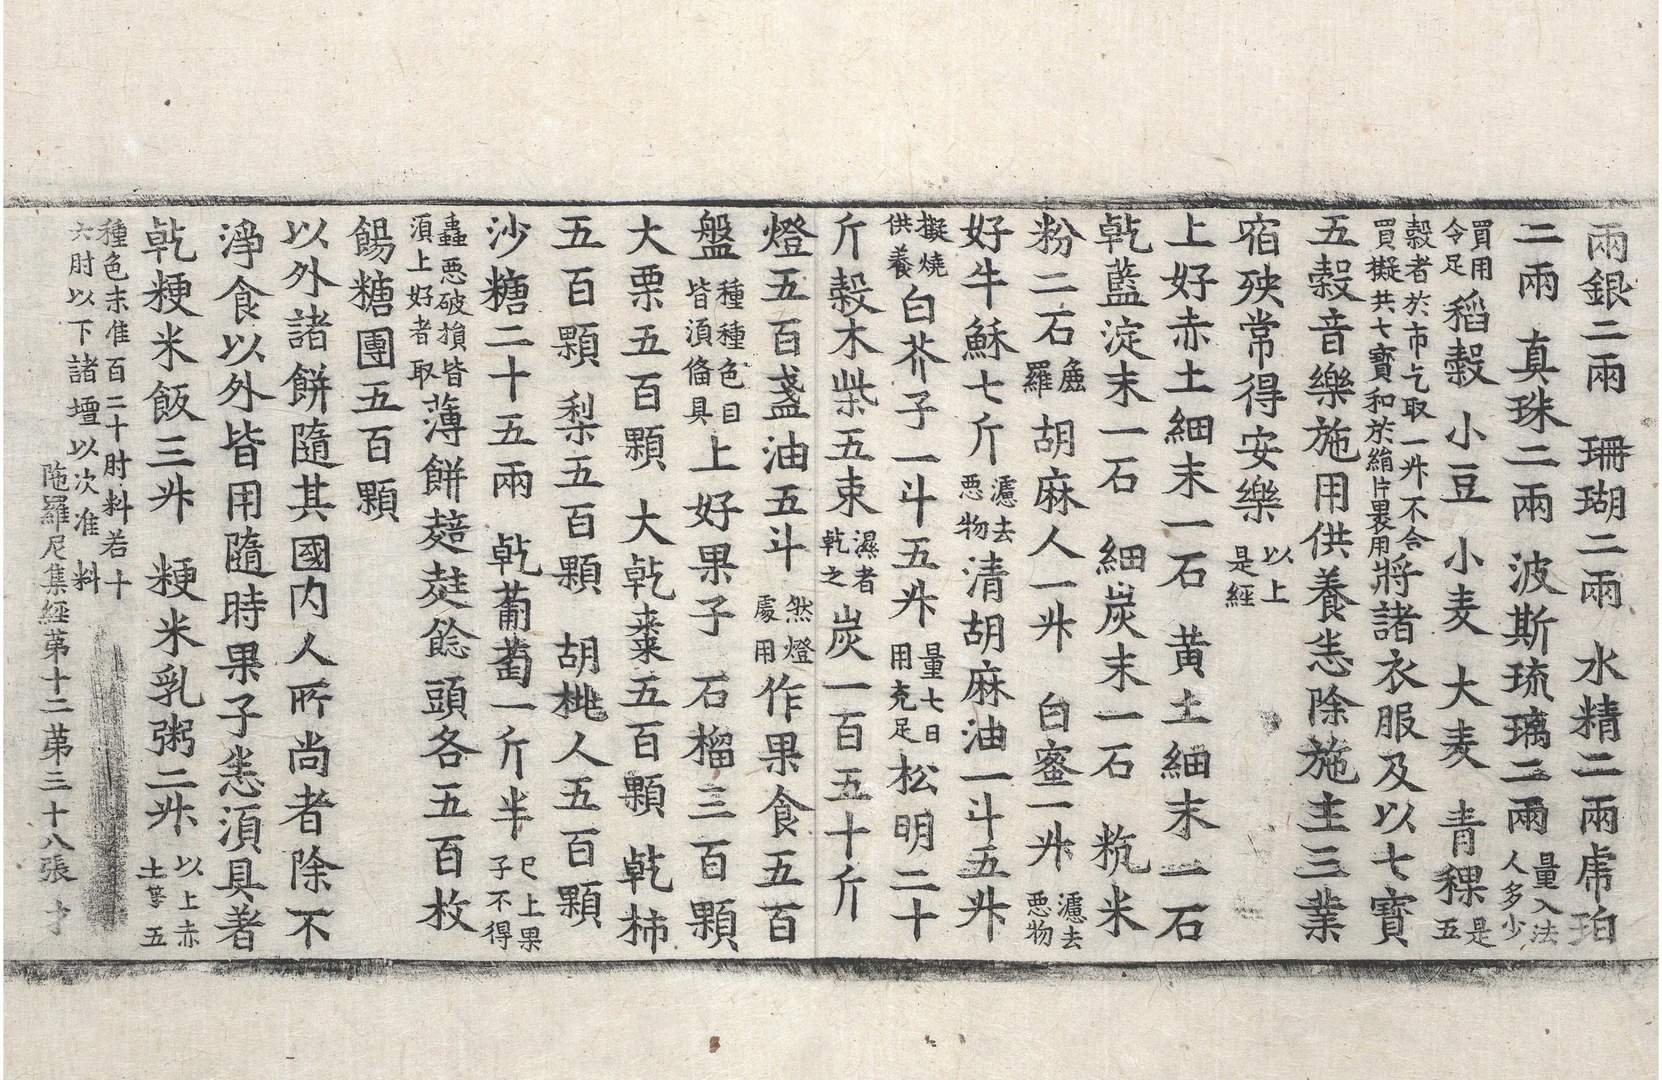 兩銀二兩　珊瑚二兩　水精二兩虎珀
二兩　真珠二兩　波斯琉璃二兩量入法人多少
買用令足稻穀　小豆　小麦　大麦　青稞是五
穀者於市乞取一升不合買擬共七寶和於絹片裹用將諸衣服及以七寶
五穀音樂施用供養恙除施主三業
宿殃常得安樂以上是經
上好赤土細末一石　黃土細末一石
乾藍淀末一石　細炭末一石　粇米
粉二石麁羅胡麻人一升　白蜜一升濾去惡物
好牛穌七斤濾去惡物清胡麻油一斗五升
擬燒供養白芥子一斗五升量七日用充足松明二十
斤穀木柴五束濕者乾之炭一百五十斤
燈五百盞油五斗然燈處用作果食五百
盤種種色目皆須俻具上好果子　石榴三百顆
大栗五百顆　大乾棗五百顆　乾柿
五百顆　梨五百顆　胡桃人五百顆
沙糖二十五兩　乾蒲萄一斤半已上果子不得
蟲惡破損皆須上好者取薄餅䴺䴴餤頭各五百枚
餳糖團五百顆
以外諸餅隨其國內人所尚者除不
淨食以外皆用隨時果子恙須具著
乾粳米飯三升　粳米乳粥二升以上赤土等五
種色末准百二十肘料若十六肘以下諸壇以次准料
陁羅尼集經第十二第三十八張　才